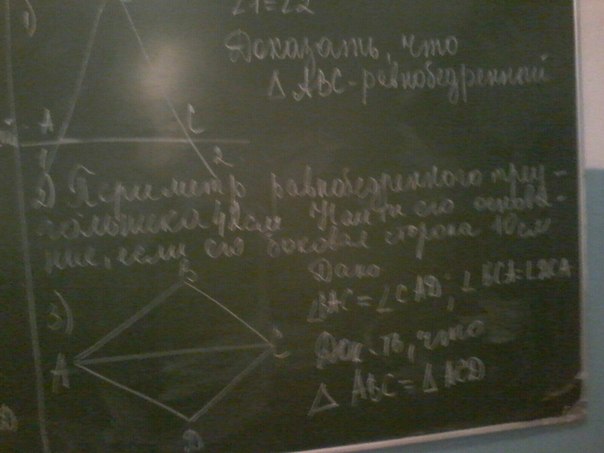 1)
∠1=∠2
Доказать, что
△ABC-равнобедренный
A
C
1
2
2) Периметр равнобедренного треу-
гольника см Найти его основа-
ние, если его боковая сторона 10см
Дано
3)
B
∠BAC=∠CAD; ∠BCA=∠DCA
C
Док-ть, что
A
△ ABC=△ACD
D
D